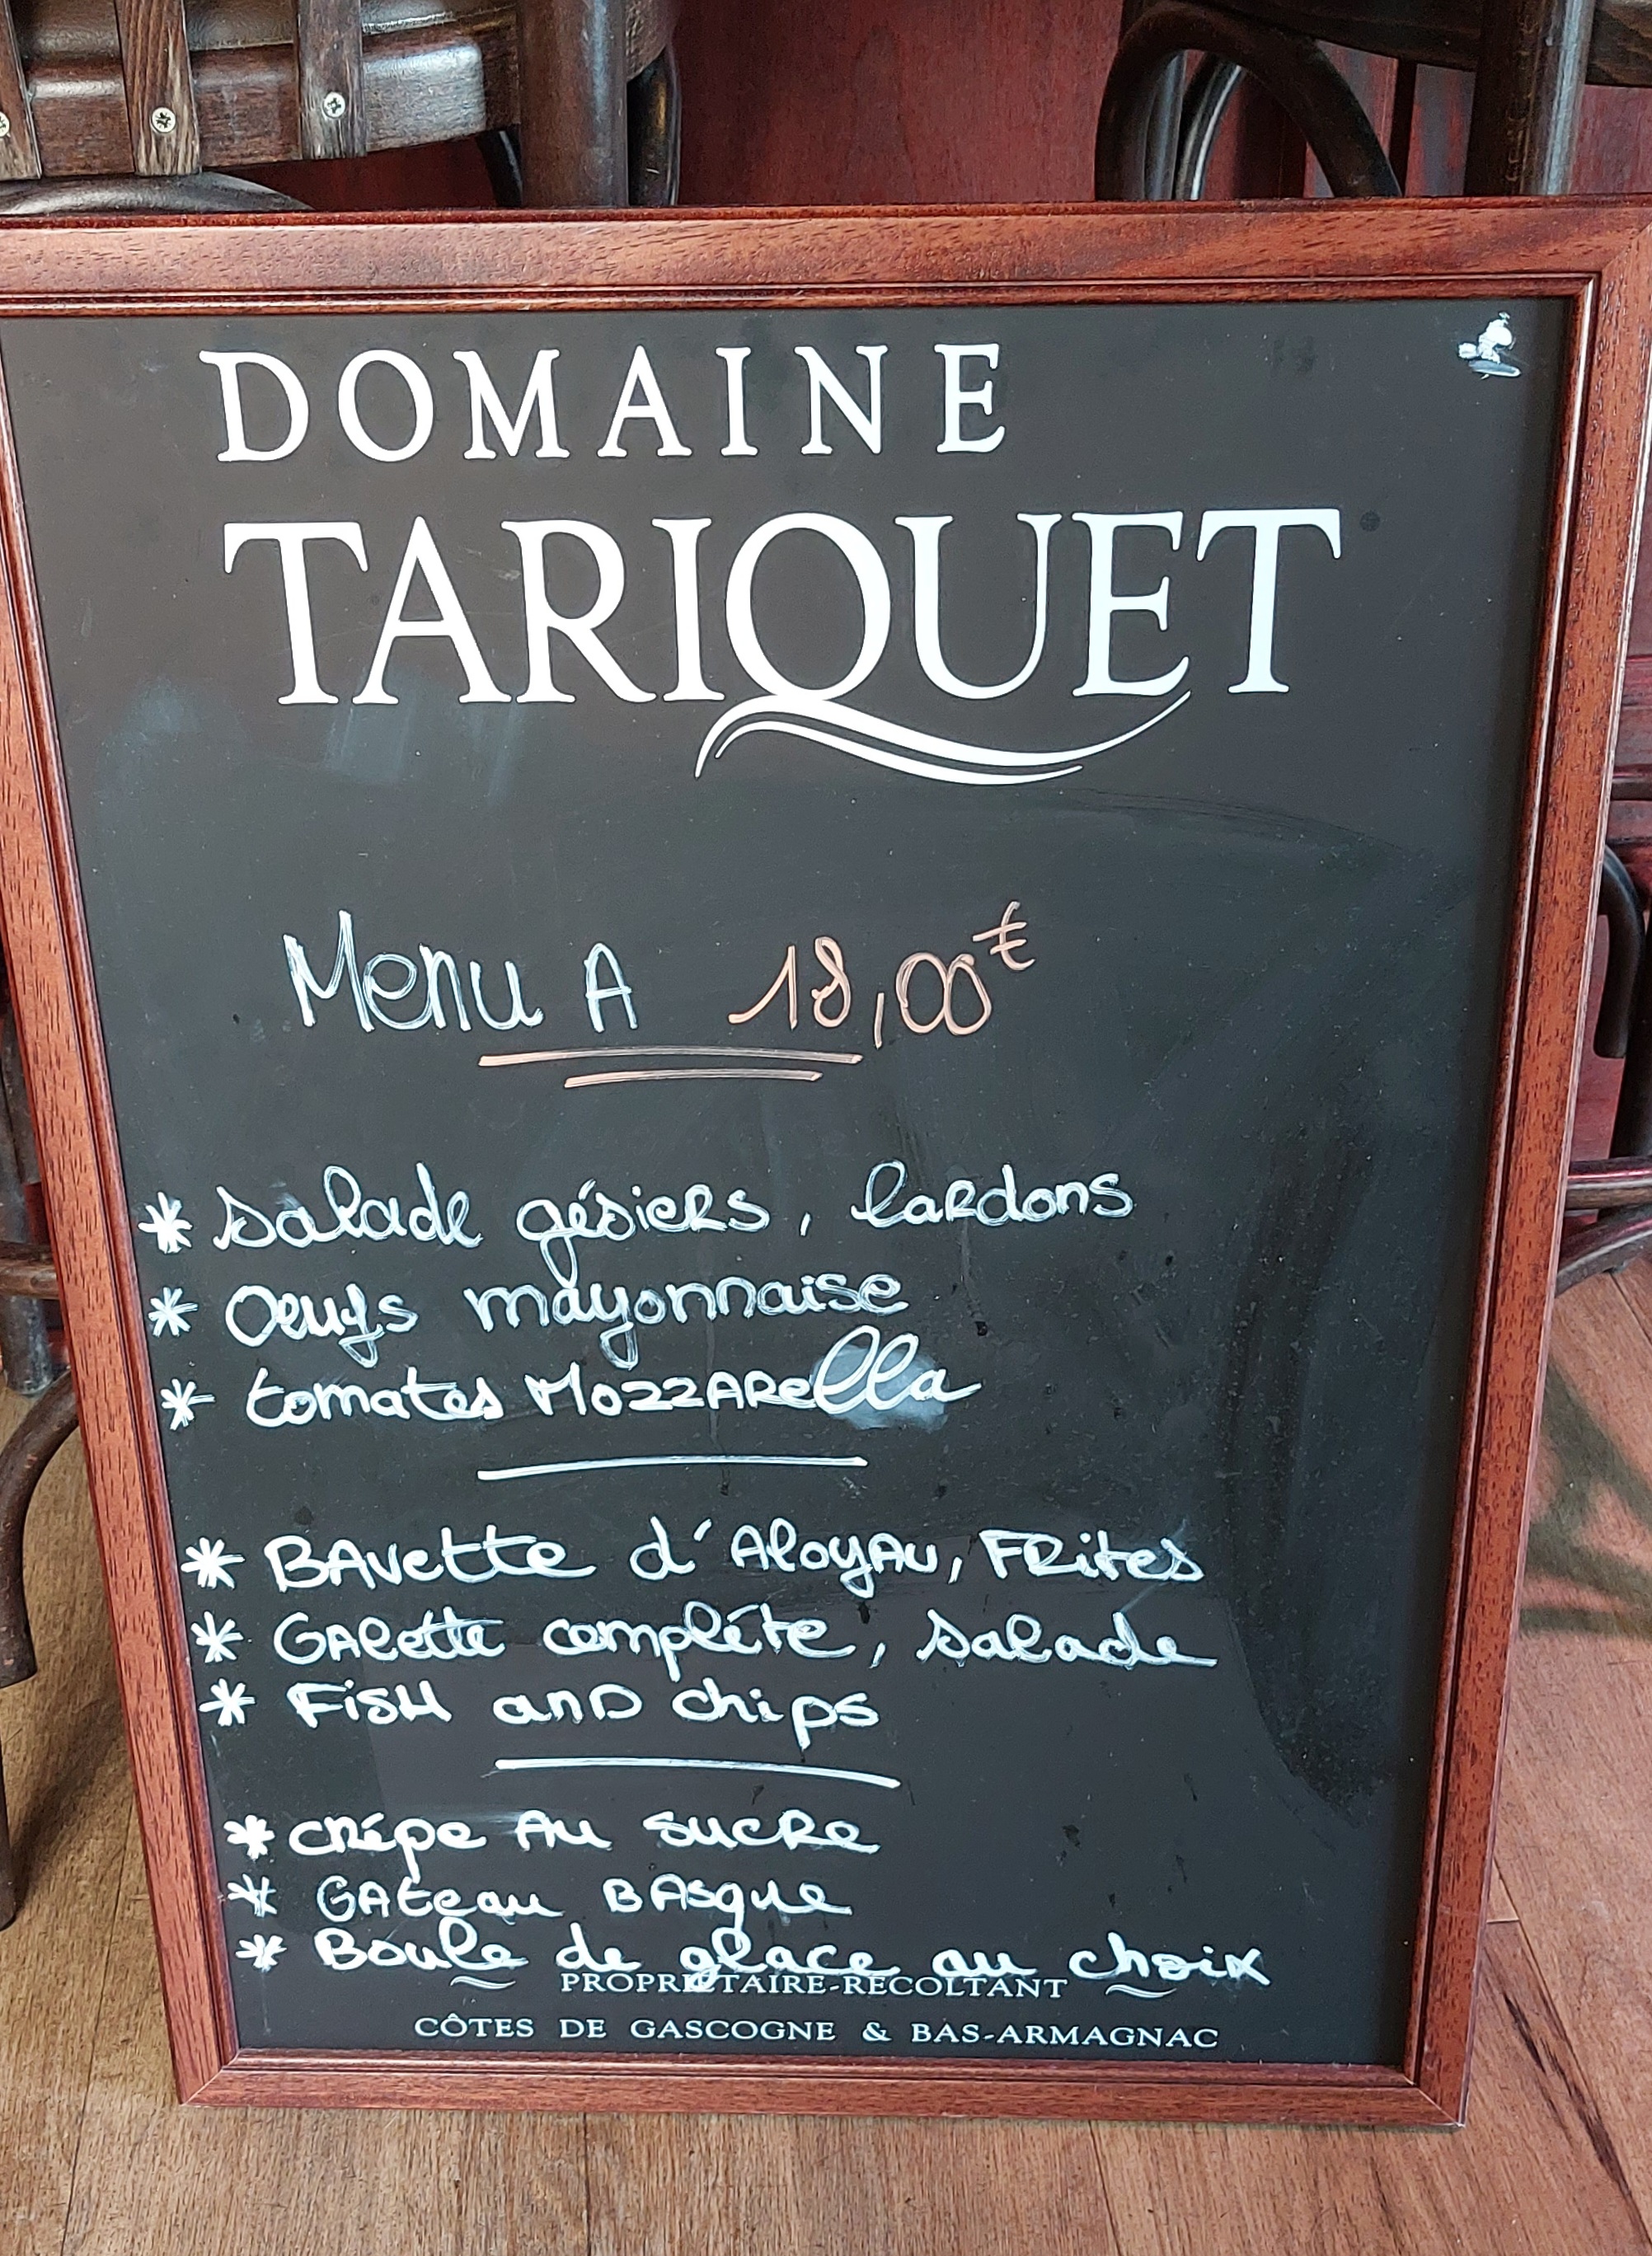 DOMAINE
TARIQUET
Menu A 18,00€
* Salade gésiers, lardons
* Oeufs mayonnaise
* tomates MozzARella
* BAvette d'AloyAu, FRites
* GAlette complête, Salade
* FisH anD chips
* crêpe Au sucRe
* GAteau BAsque
* Boule de glace au choix
PROPRIÉTAIRE-RÉCOLTANT
CÔTES DE GASCOGNE & BAS-ARMAGNAC